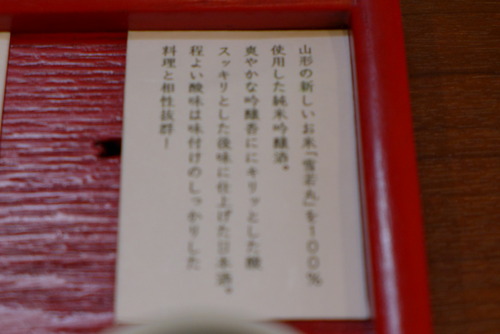 山形の新しいお米「雪若丸」を１００％
使用した純米吟醸酒。
爽やかな吟醸香ににキリッとした酸
スッキリとした後味に仕上げた日本酒。
程よい酸味は味付けのしっかりした
料理と相性抜群！